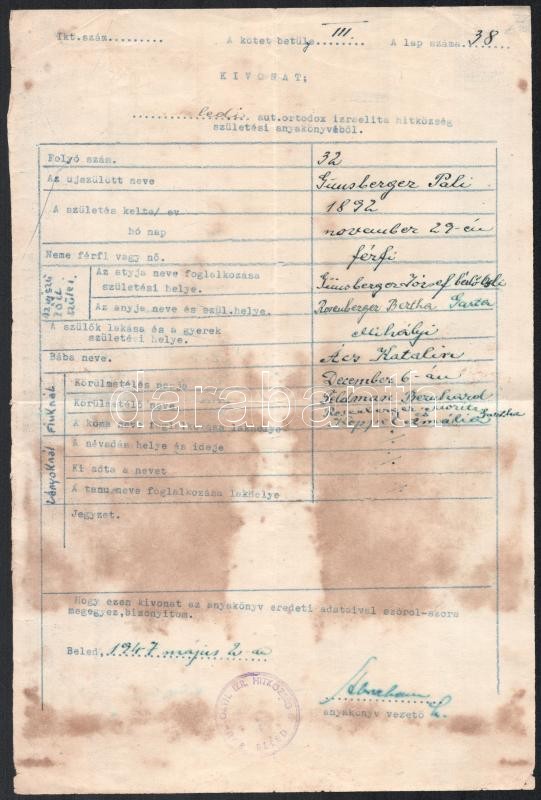 Ikt.szám.......... A kötet betűje III. A lap száma. 38
KIVONAT:
ledi aut.ortodox izraelita hitközség
születési anyakönyvéből.
Folyó szám. 32
Az ujszülött neve Günsberger Pali
A születés kelte/ év 1892
hó nap november 29-én
Neme férfi vagy nő. férfi
Az atyja neve foglalkozása
születési helye. Günsberger József
Az anyja neve és szül.helye. Rosenberger Bertha Garta
A szülők lakása és a gyerek
születési helye. Mihályi
Bába neve. Ács Katalin
Fiuknál
Körülmetélés napja December 6 án
Körülmetélő neve Feldman Bernhard
A koma neve foglalkozása lakhelye Rosenberger Móritz és
Amália
Lányoknál
A névadás helye és ideje
Ki adta a nevet
A tanu neve foglalkozása lakhelye
Jegyzet.
Hogy ezen kivonat az anyakönyv eredeti adataival szóról-szóra
megegyez, bizonyitom.
Beled, 1947 május 2-án
Abraham
anyakönyv vezető
ORTH. IZR. HITKÖZSÉG
darabanth